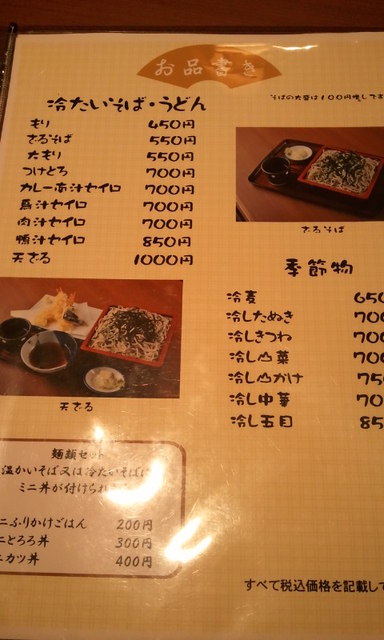 お品書き
冷たいそば・うどん
そばの大盛は100円増しです
もり 450円
ざるそば 550円
大もり 550円
つけとろ 700円
カレーあ汁セイロ 700円
鳥汁セイロ 700円
肉汁セイロ 700円
鴨汁セイロ 850円
天ざる 1000円
ざるそば
季節物
冷麦 650
冷したぬき 700
冷しきつね 700
冷し山菜 700
冷し山かけ 750
冷し中華 70
冷し五目 85
天ざる
麺類セット
温かいそば又は冷たいそばに
ミニ丼が付けられ
ニふりかけごはん 200円
ニとろろ丼 300円
ニカツ丼 400円
すべて税込価格を記載して